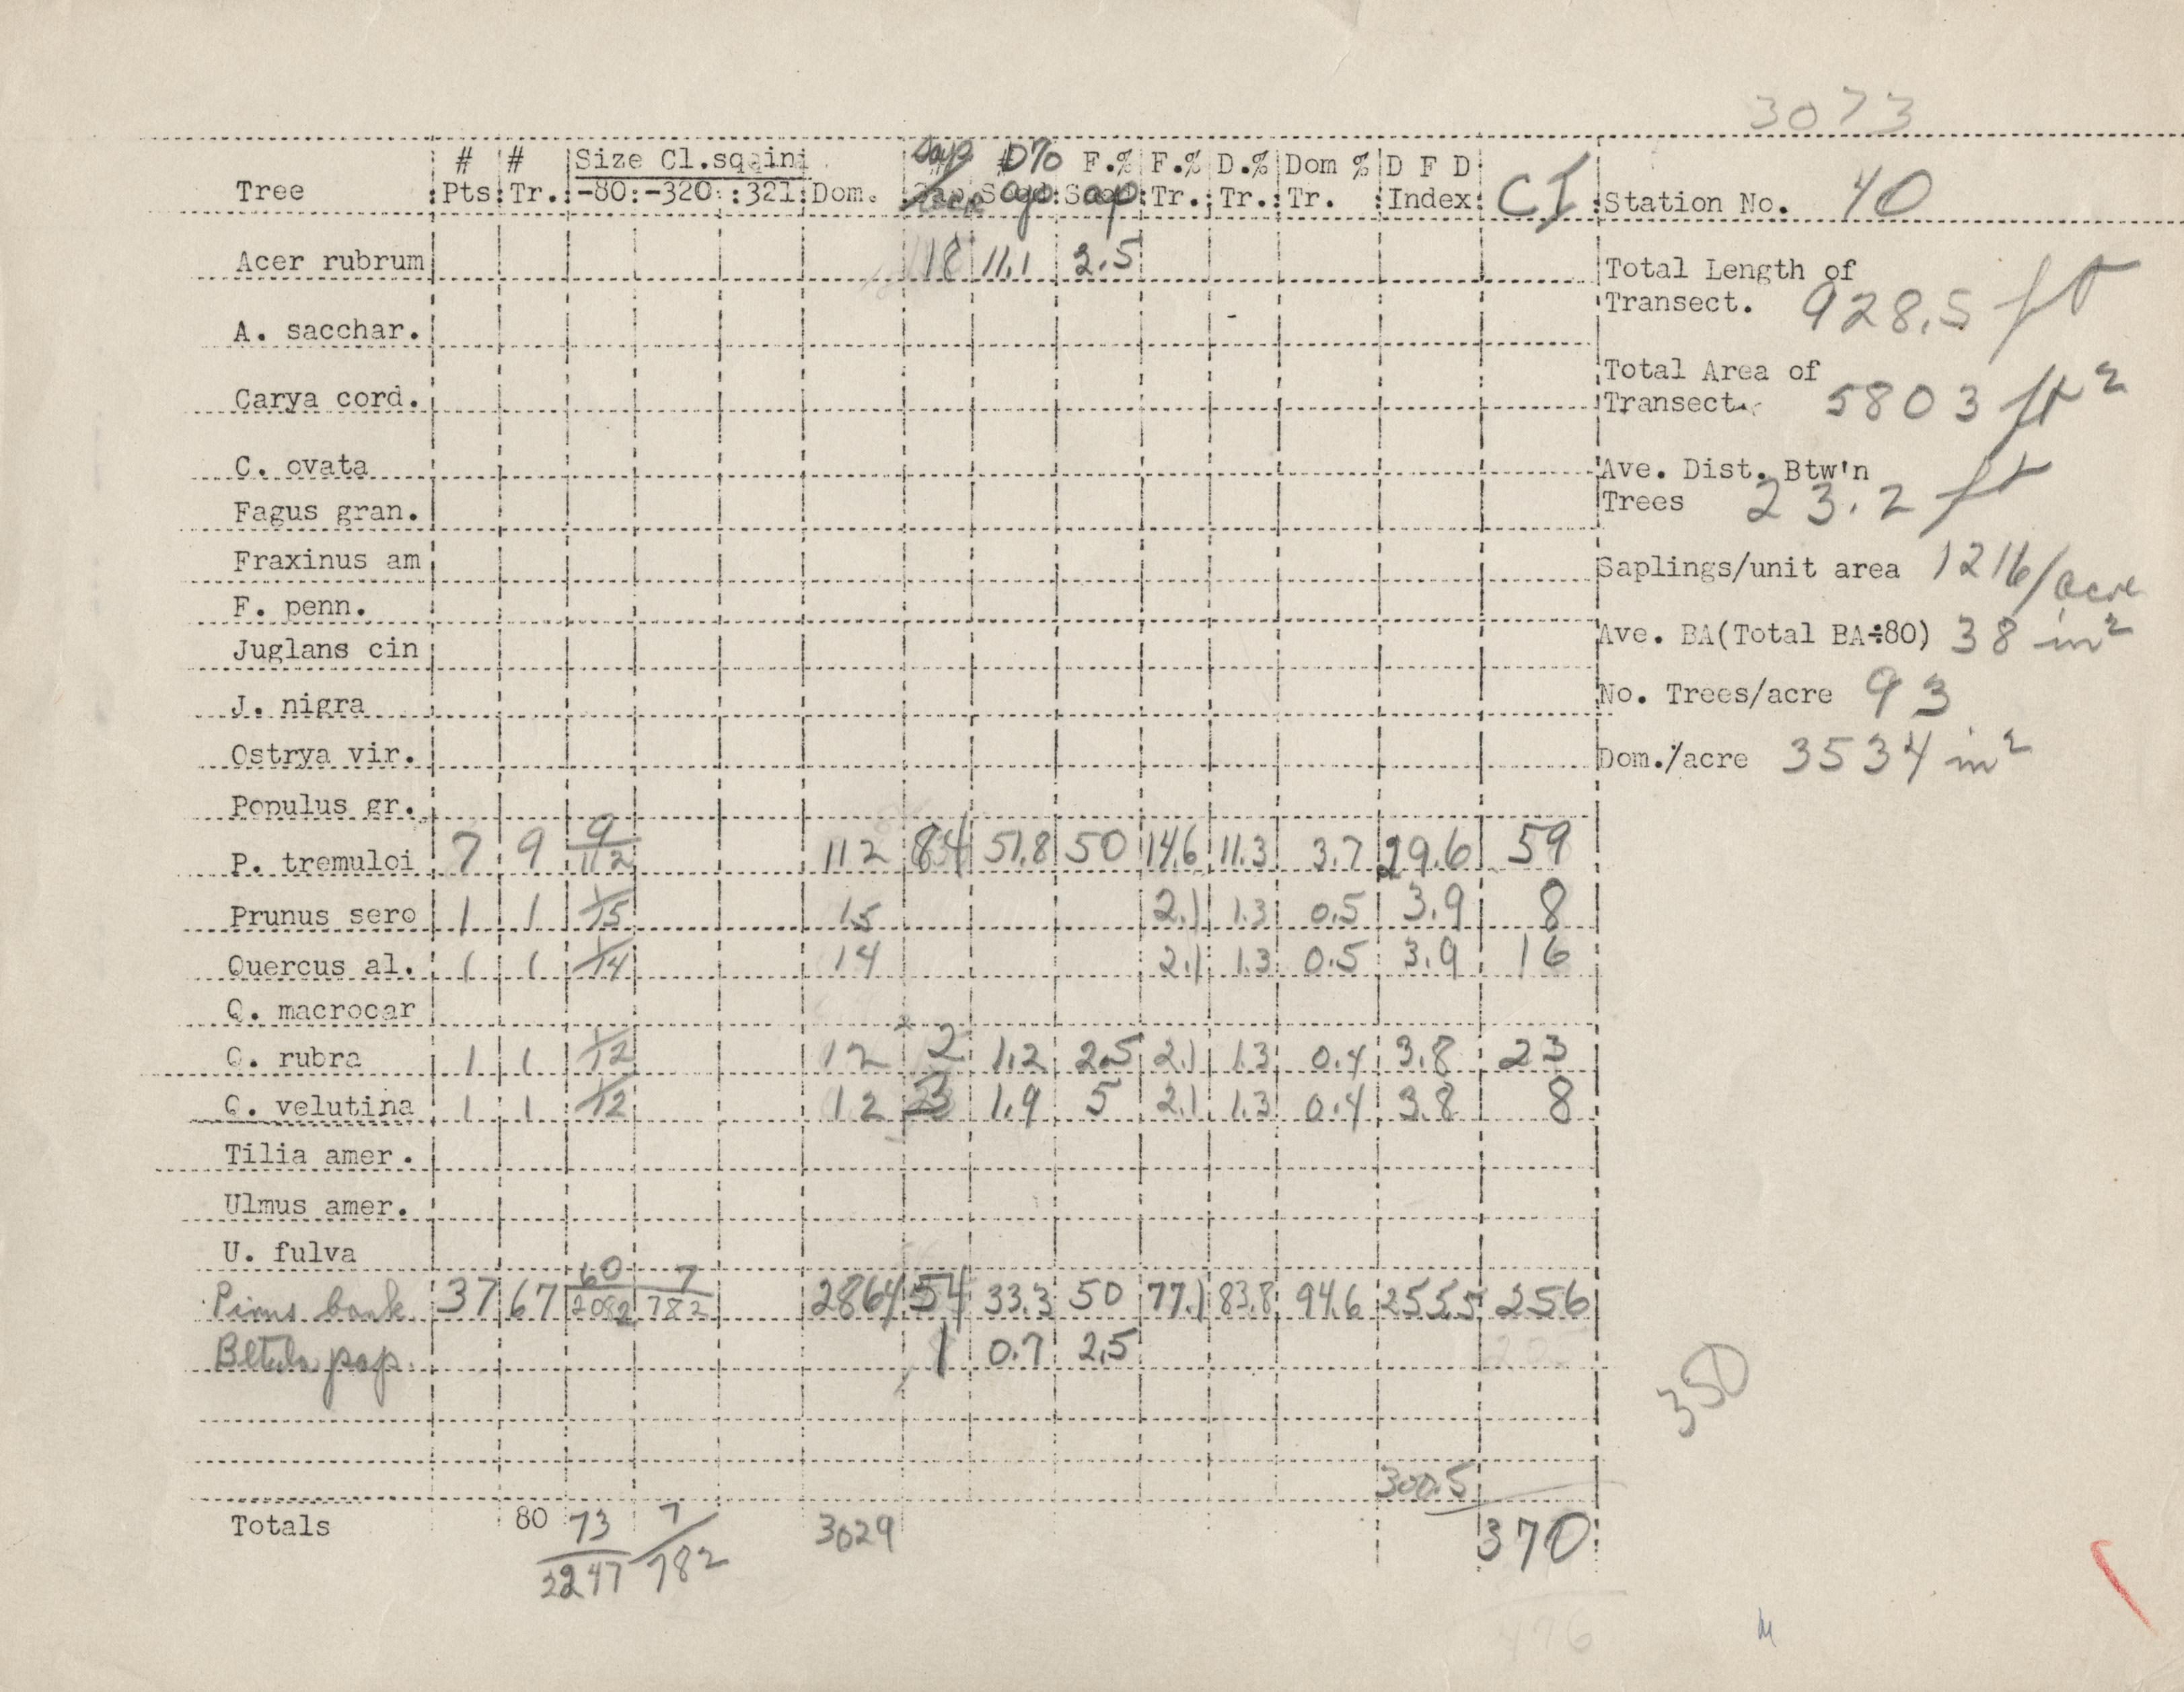 3073
# # Size Cl.sq.in. Sap D% F.% F.% D.% Dom % D F D
Tree Pts Tr. -80 -320 321 Dom. Sap Sap Tr. Tr. Tr. Index CI Station No. 40
Acer rubrum 18 11.1 2.5
Total Length of
Transect. 928.5 ft
A. sacchar.
Total Area of
Transect. 5803 ft²
Carya cord.
C. ovata
Ave. Dist. Btw'n
Trees 23.2 ft
Fagus gran.
Fraxinus am
Saplings/unit area 1216/acre
F. penn.
Juglans cin
Ave. BA(Total BA÷80) 38 in²
J. nigra
No. Trees/acre 93
Ostrya vir.
Dom./acre 3534 in²
Populus gr.
P. tremuloi 7 9 9/112 112 84 51.8 50 14.6 11.3 3.7 29.6 59
Prunus sero 1 1 1/15 15 2.1 1.3 0.5 3.9 8
Quercus al. 1 1 1/14 14 2.1 1.3 0.5 3.9 16
Q. macrocar
Q. rubra 1 1 1/12 12 2 1.2 2.5 2.1 1.3 0.4 3.8 23
Q. velutina 1 1 1/12 12 3 1.9 5 2.1 1.3 0.4 3.8 8
Tilia amer.
Ulmus amer.
U. fulva
Pinus bank. 37 67 60/2082 7/782 2864 54 33.3 50 77.1 83.8 94.6 255.5 256
Betula pap. 1 0.7 2.5
350
300.5
Totals 80 73/2247 7/782 3029 370
476
M